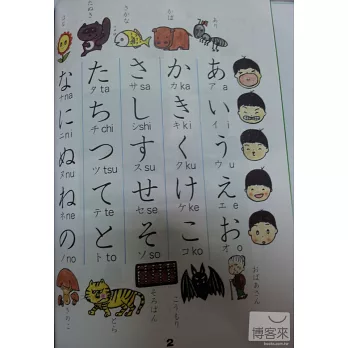 あり
あ ア a
い イ i
う ウ u
え エ e
お オ o
おばあさん
かば
か カ ka
き キ ki
く ク ku
け ケ ke
こ コ ko
こうもり
さかな
さ サ sa
し シ shi
す ス su
せ セ se
そ ソ so
そろばん
たぬき
た タ ta
ち チ chi
つ ツ tsu
て テ te
と ト to
とら
な ナ na
に ニ ni
ぬ ヌ nu
ね ネ ne
の ノ no
きのこ
2
博客來